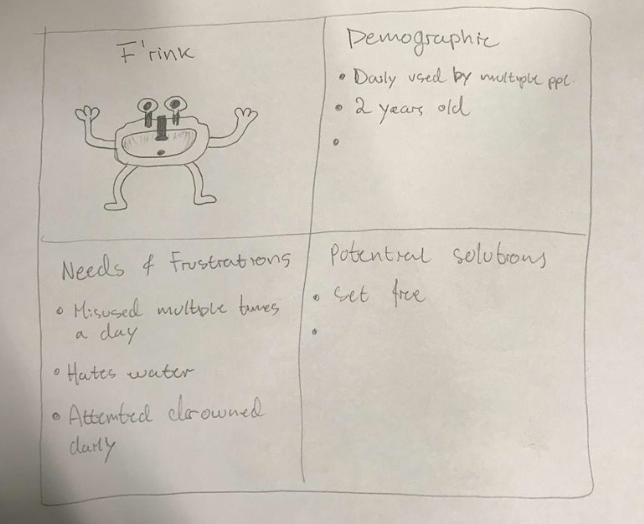 F'rink
Demographic
• Daily used by multiple ppl.
• 2 years old
•
Needs & Frustrations
• Misused multiple times
a day
• Hates water
• Attembed drowned
daily
Potential solutions
• Set free
•